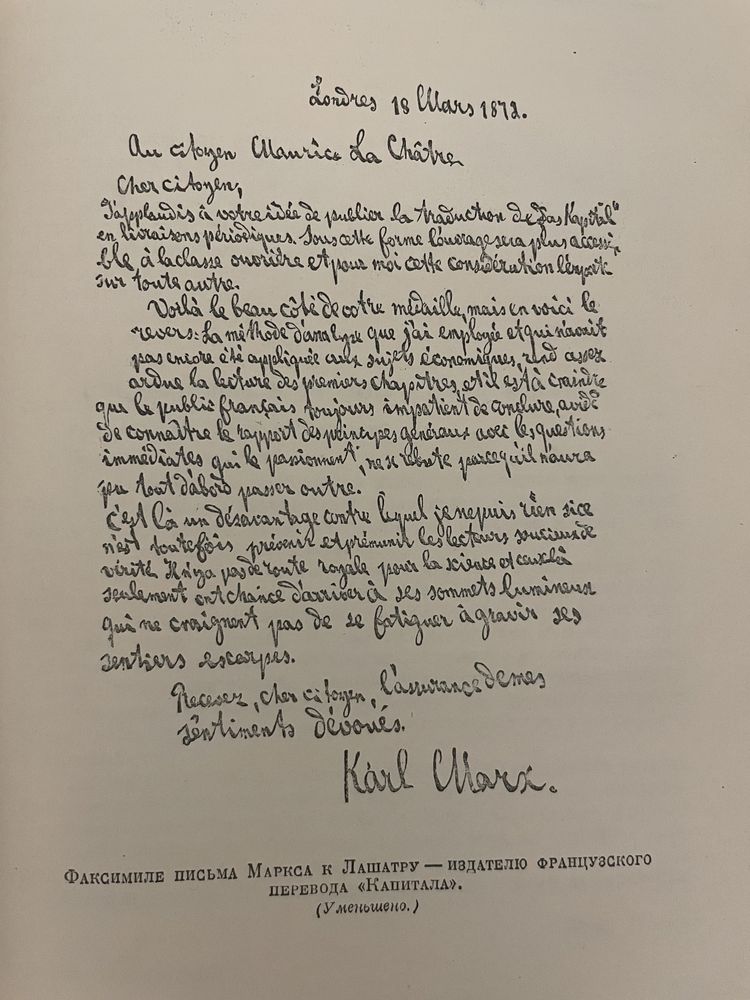 Londres 18 Mars 1872.
Au citoyen Maurice La Châtre
Cher citoyen,
J'applaudis à votre idée de publier la traduction de „Das Kapital“
en livraisons périodiques. Sous cette forme l'ouvrage sera plus accessi-
ble à la classe ouvrière et pour moi cette considération l'emporte
sur toute autre.
Voilà le beau côté de votre médaille, mais en voici le
revers: La méthode d'analyse que j'ai employée et qui n'avait
pas encore été appliquée aux sujets économiques, rend assez
ardue la lecture des premiers chapitres, et il est à craindre
que le public français toujours impatient de conclure, avide
de connaître le rapport des principes généraux avec les questions
immédiates qui le passionnent, ne se rebute parce qu'il n'aura
pu tout d'abord passer outre.
C'est là un désavantage contre lequel je ne puis rien si ce
n'est toutefois prévenir et prémunir les lecteurs soucieux de
vérité. Il n'y a pas de route royale pour la science et ceux là
seulement ont chance d'arriver à ses sommets lumineux
qui ne craignent pas de se fatiguer à gravir ses
sentiers escarpés.
Recevez, cher citoyen, l'assurance de mes
sentiments dévoués.
Karl Marx.
Факсимиле письма Маркса к Лашатру — издателю французского
перевода «Капитала».
(Уменьшено.)